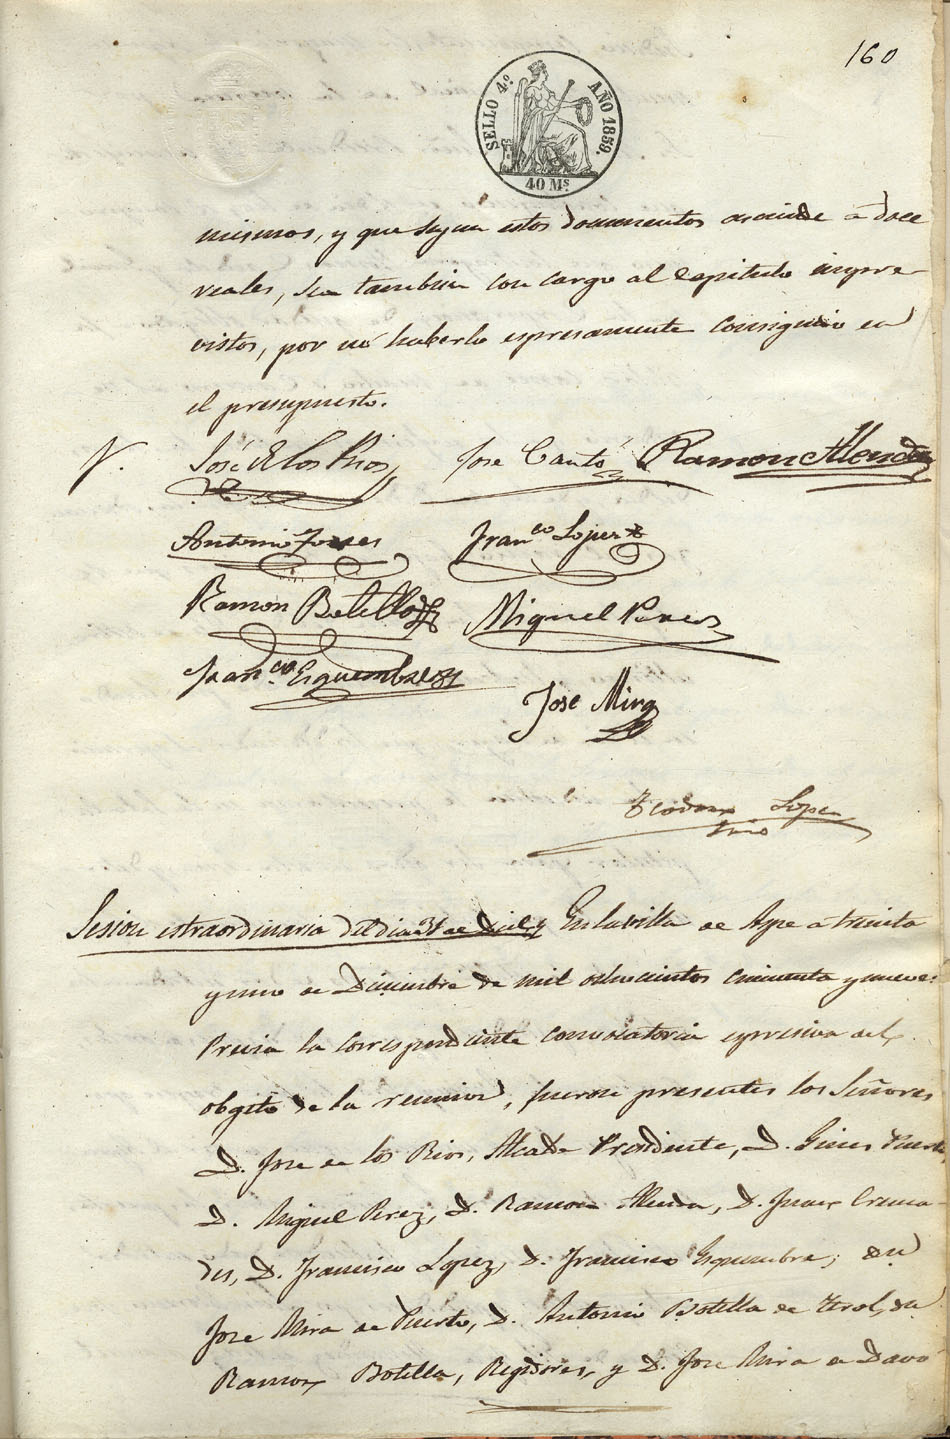 160
SELLO 4º AÑO 1859.
40 Ms.
mismos, y que segun estos documentos asciende a doce
reales, sea tambien con cargo al Capitulo impre
vistos, por no haberlo espresamente consignado en
el presupuesto.
V. José de los Rios Jose Cantó Ramon Allenda
Antonio Franco Lopez
Ramon Botella Miguel Perez
Franco Esquembre
Jose Mira
Teodoro Lopez
Srio
Sesion estraordinaria del dia 31 de Dice En la villa de Aspe a treinta
y uno de Diciembre de mil ochocientos cincuenta y nueve:
Previa la correspondiente convocatoria espresiva del
obgeto de la reunion, fueron presentes los Señores
D. Jose de los Rios, Alcalde Presidente, D. Gines Puerto,
D. Miguel Perez, D. Ramon Allenda, D. Juan Crema
des, D. Francisco Lopez, D. Francisco Esquembre, Dn
Jose Mira de Puerto, D. Antonio Botella de Terol, Dn
Ramon Botella, Regidores, y D. Jose Mira de Davó